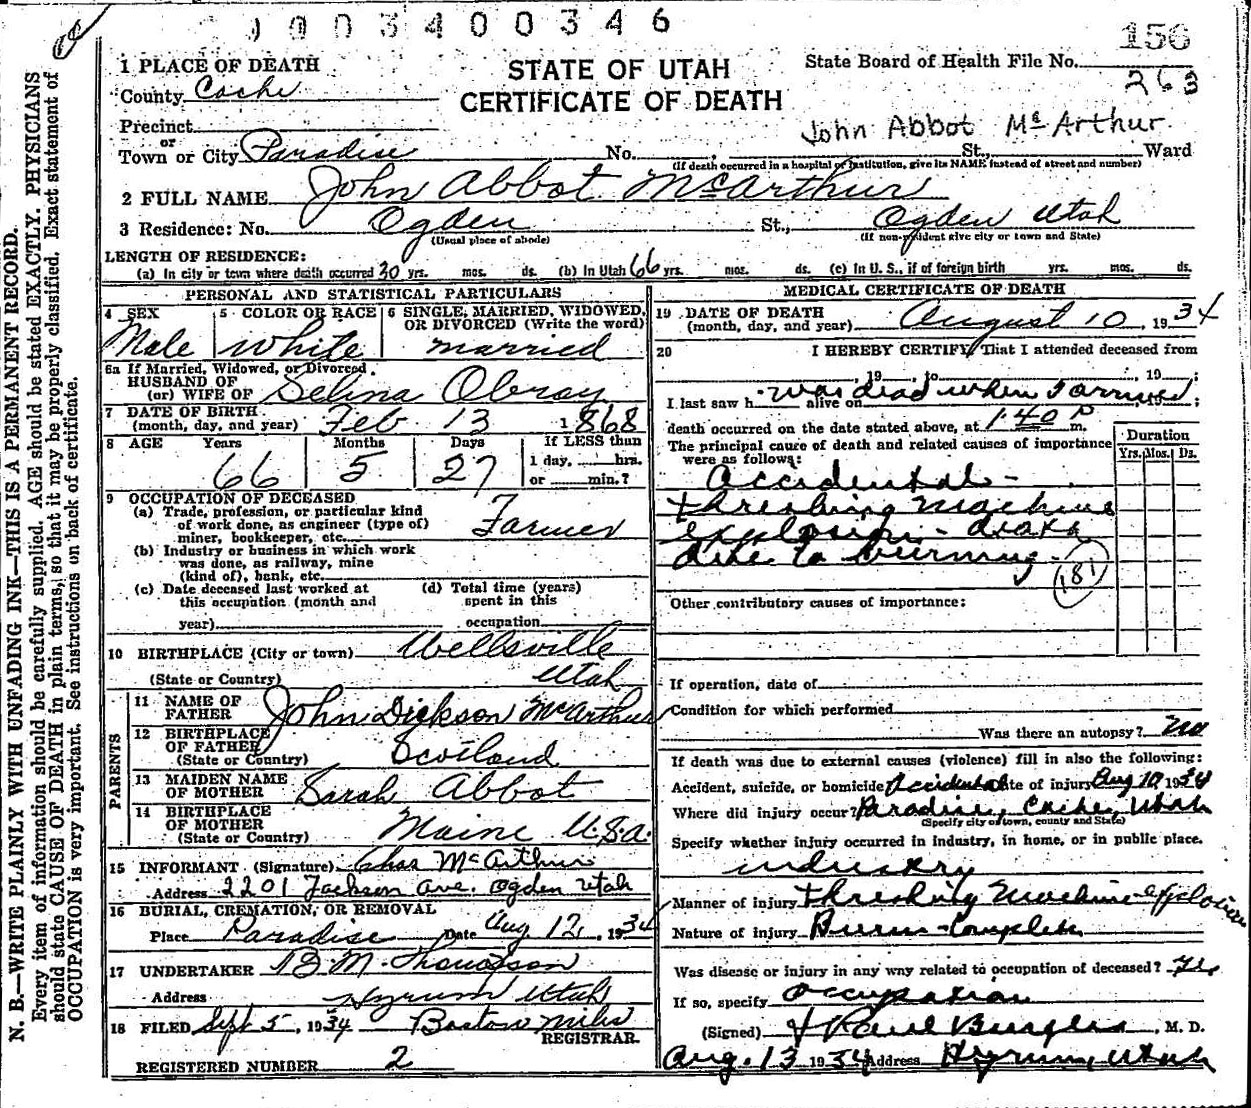 1003400346
156
1 PLACE OF DEATH
STATE OF UTAH
State Board of Health File No.
County Cache
CERTIFICATE OF DEATH
263
Precinct
or
John Abbot McArthur
Town or City Paradise No. St., Ward
(If death occurred in a hospital or institution, give its NAME instead of street and number)
2 FULL NAME John Abbot McArthur
3 Residence: No. Ogden St., Ogden Utah
(Usual place of abode) (If non-resident give city or town and State)
LENGTH OF RESIDENCE:
(a) In city or town where death occurred 30 yrs. mos. ds. (b) In Utah 66 yrs. mos. ds. (c) In U. S., if of foreign birth yrs. mos. ds.
PERSONAL AND STATISTICAL PARTICULARS
4 SEX 5 COLOR OR RACE 6 SINGLE, MARRIED, WIDOWED,
OR DIVORCED (Write the word)
Male White married
6a If Married, Widowed, or Divorced
HUSBAND OF
(or) WIFE OF Selina Obray
7 DATE OF BIRTH
(month, day, and year) Feb 13 1868
8 AGE Years Months Days If LESS than
66 5 27 1 day, hrs.
or min.?
9 OCCUPATION OF DECEASED
(a) Trade, profession, or particular kind
of work done, as engineer (type of)
miner, bookkeeper, etc. Farmer
(b) Industry or business in which work
was done, as railway, mine
(kind of), bank, etc.
(c) Date deceased last worked at
this occupation (month and
year)
(d) Total time (years)
spent in this
occupation
10 BIRTHPLACE (City or town) Wellsville
(State or Country) Utah
PARENTS
11 NAME OF
FATHER John Dickson McArthur
12 BIRTHPLACE
OF FATHER
(State or Country) Scotland
13 MAIDEN NAME
OF MOTHER Sarah Abbot
14 BIRTHPLACE
OF MOTHER
(State or Country) Maine U.S.a.
15 INFORMANT (Signature) Chas McArthur
Address 2201 Jackson Ave. Ogden Utah
16 BURIAL, CREMATION, OR REMOVAL
Place Paradise Date Aug 12, 1934
17 UNDERTAKER B. M. Thompson
Address Hyrum Utah
18 FILED Sept 5, 1934 Barton Miles
REGISTRAR.
REGISTERED NUMBER 2
MEDICAL CERTIFICATE OF DEATH
19 DATE OF DEATH
(month, day, and year) August 10, 1934
20 I HEREBY CERTIFY, That I attended deceased from
, 19 to , 19 ;
I last saw h alive on was dead when I arrived , 19 ;
death occurred on the date stated above, at 1:40 P m.
The principal cause of death and related causes of importance
were as follows:
Duration
Yrs. Mos. Ds.
Accidental -
threshing machine
explosion - death
due to burning -
(181)
Other contributory causes of importance:
If operation, date of
Condition for which performed
Was there an autopsy? No
If death was due to external causes (violence) fill in also the following:
Accident, suicide, or homicide Accidental Date of injury Aug 10 1934
Where did injury occur? Paradise, Cache, Utah
(Specify city or town, county and State)
Specify whether injury occurred in industry, in home, or in public place.
industry
Manner of injury threshing machine explosion
Nature of injury Burn - Complete
Was disease or injury in any way related to occupation of deceased? Yes
If so, specify occupation
(Signed) J Paul Burgess, M. D.
Aug. 13 1934 Address Hyrum, Utah
N. B.—WRITE PLAINLY WITH UNFADING INK—THIS IS A PERMANENT RECORD.
Every item of information should be carefully supplied. AGE should be stated EXACTLY. PHYSICIANS
should state CAUSE OF DEATH in plain terms, so that it may be properly classified. Exact statement of
OCCUPATION is very important. See instructions on back of certificate.